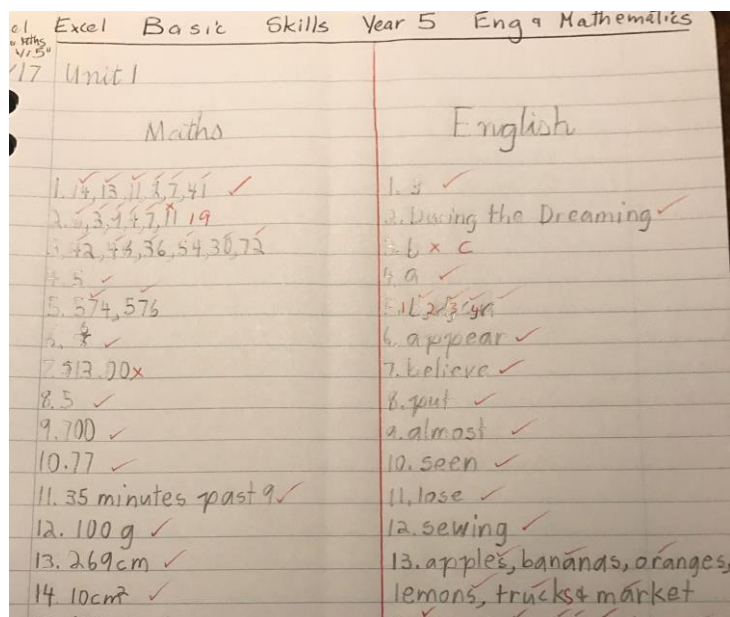 el Excel Basic Skills Year 5 Eng & Mathematics
Mths
Yr 5"
/17 Unit 1
Maths
1. 14, 13, 11, 8, 7, 41
3, 9, 4, 7, 11 19
3. 42, 48, 36, 54, 30, 72
4. 5
5. 574, 576
6.
7. $12.00
8. 5
9. 700
10. 77
11. 35 minutes past 9
12. 100 g
13. 269cm
14. 10cm²
English
1. y
2. During the Dreaming
3. b x c
4. a
5. 1 2 3 4
6. appear
7. believe
8. put
9. almost
10. seen
11. lose
12. sewing
13. apples, bananas, oranges,
lemons, trucks & market